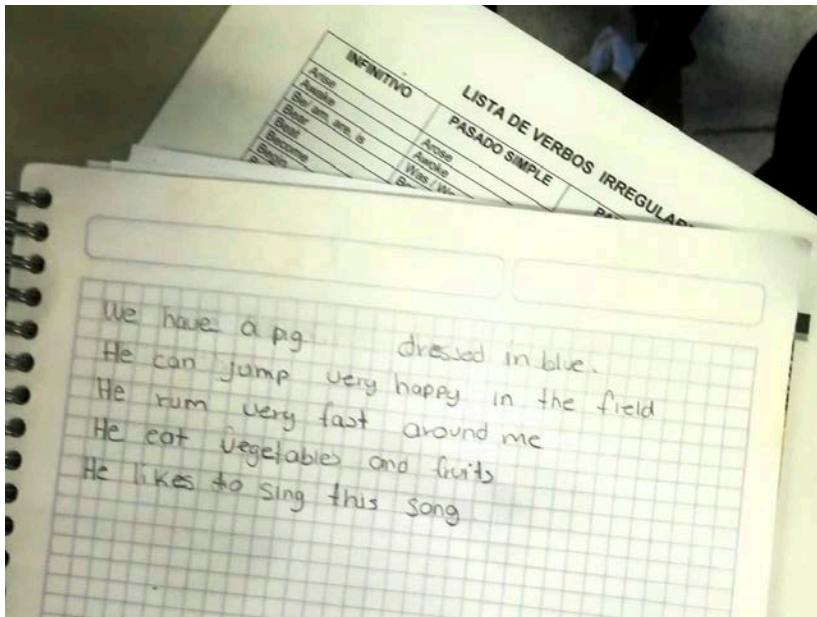 LISTA DE VERBOS IRREGULAR
INFINITIVO PASADO SIMPLE
Arise Arose
Awake Awoke
Be/ am, are, is Was /
Bear
Beat
Become
Begin
We have a pig dressed in blue.
He can jump very happy in the field
He rum very fast around me
He eat vegetables and fruits
He likes to sing this song